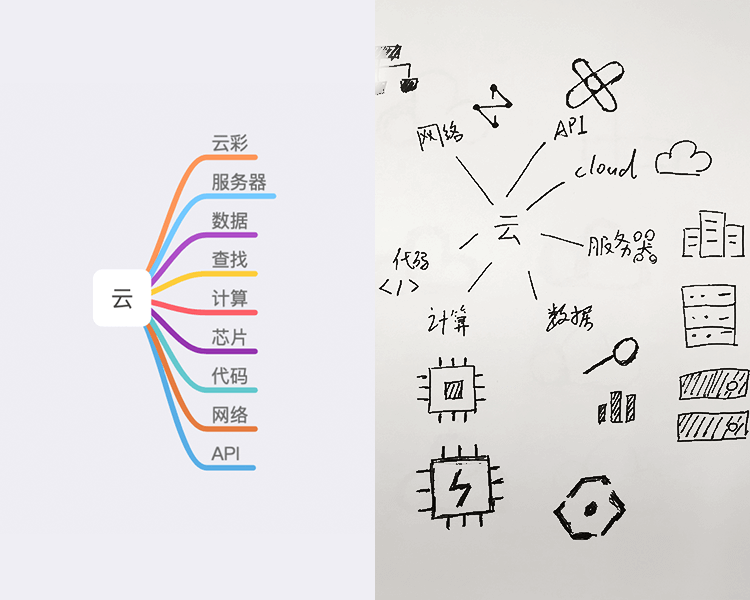 云
云彩
服务器
数据
查找
计算
芯片
代码
网络
API
网络
API
cloud
云
服务器
代码
</>
计算
数据